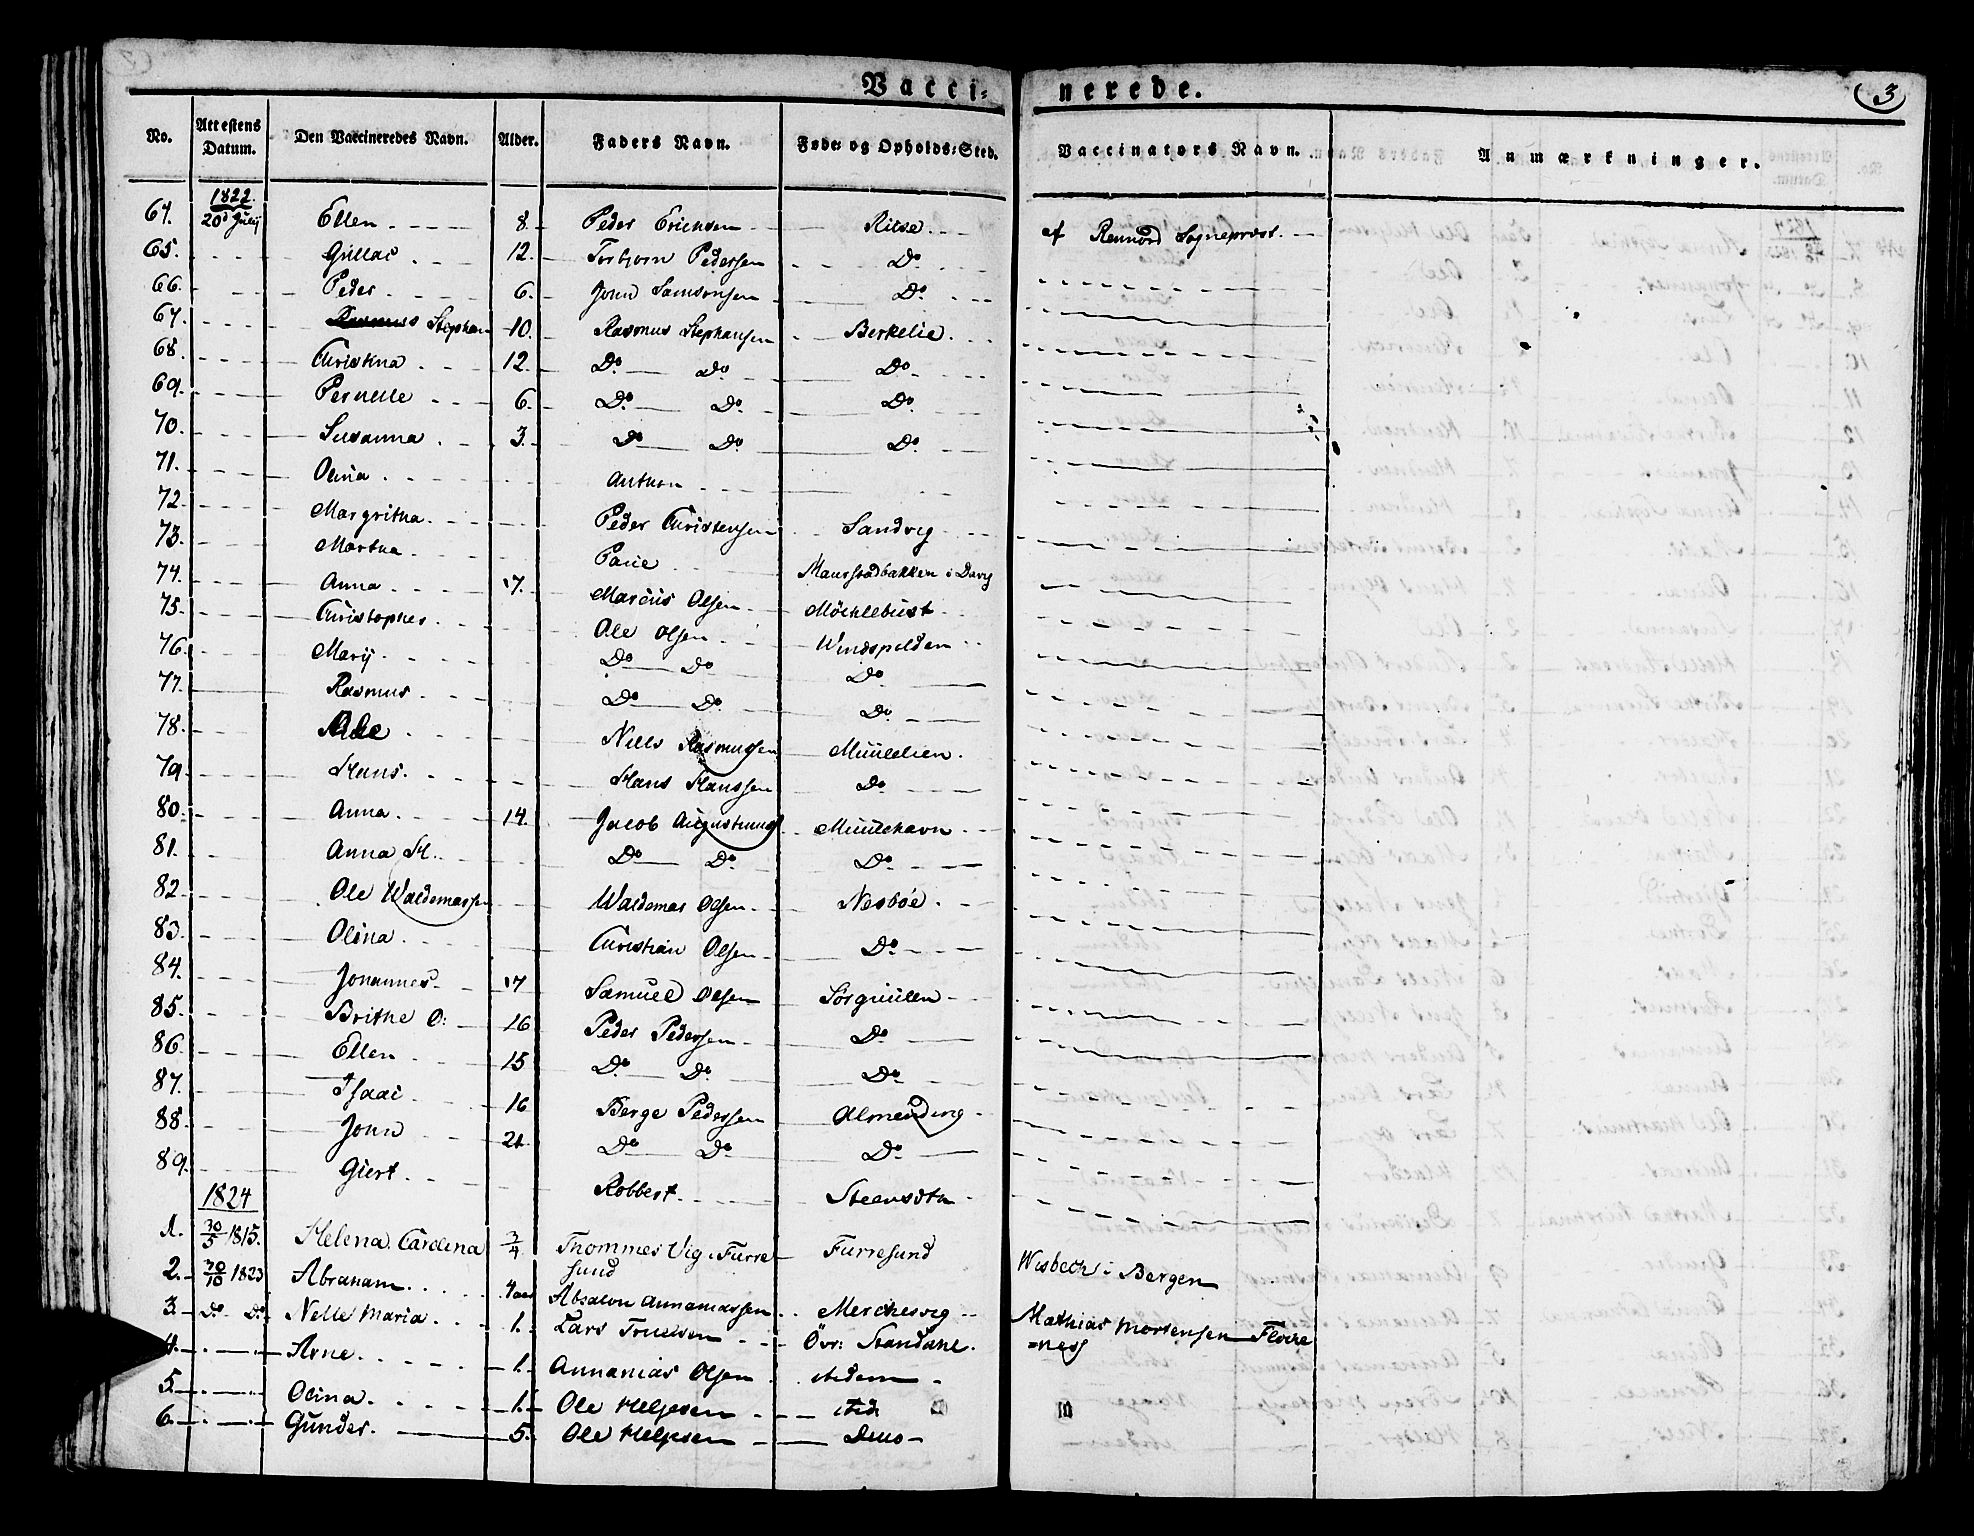 Vacci- nerede. 3
No. Attestens Datum. Den Vaccineredes Navn. Alder. Faders Navn. Føde- og Opholds-Sted. Vaccinators Navn. Anmærkninger.
1822.
64. 20d July Ellen 8. Peder Erichsen Riise af Sogneprest.
65. 12. Torbiorn Pedersen Do
66. Peder 6. John Samsonsen Do
67. Stephan 10. Rasmus Stephansen Berkelie
68. Christina 12. Do Do Do
69. Pernille 6. Do Do Do
70. Susanna 3. Do Do Do
71. Olina Anthon
72. Margritha Peder Christensen Sandvig
73. Martha Maurstadbakken i Davig
74. Anna 17. Marcus Olsen Möchlebust
75. Christopher Ole Olsen
76. Marij Do Do Do
77. Rasmus Do Do Do
78. Niels Rasmussen Muulelien
79. Hans Hans Hanssen Do
80. Anna 14. Jacob Muulehavn
81. Anna H. Do Do Do
82. Ole Waldemarsen Waldemar Olsen Nesböe
83. Olina Christian Olsen Do
84. Johannes 17 Samuel Olsen Sörguulen
85. Brithe O: 16 Peder Pedersen Do
86. Ellen 15 Do Do Do
87. Isaac 16 Berge Pedersen Almending
88. John 21 Do Do Do
89. Giert Robbert
1824
1. 30/5 1815. Helena Carolina 3/4 Thommes Vig i Furre
sund Furresund Wisbech i Bergen
2. 30/10 1823 Abraham 4 Absalon Annaniassen Merchesvig
3. Do Do Nelle Maria 1. Lars Truelsen Övr: Standahl. Mathias Mortensen Flore
=nes
4. Arne 1. Annanias Olsen
5. Olina 1. Ole Helgesen
6. Gunder 5. Ole Helgesen